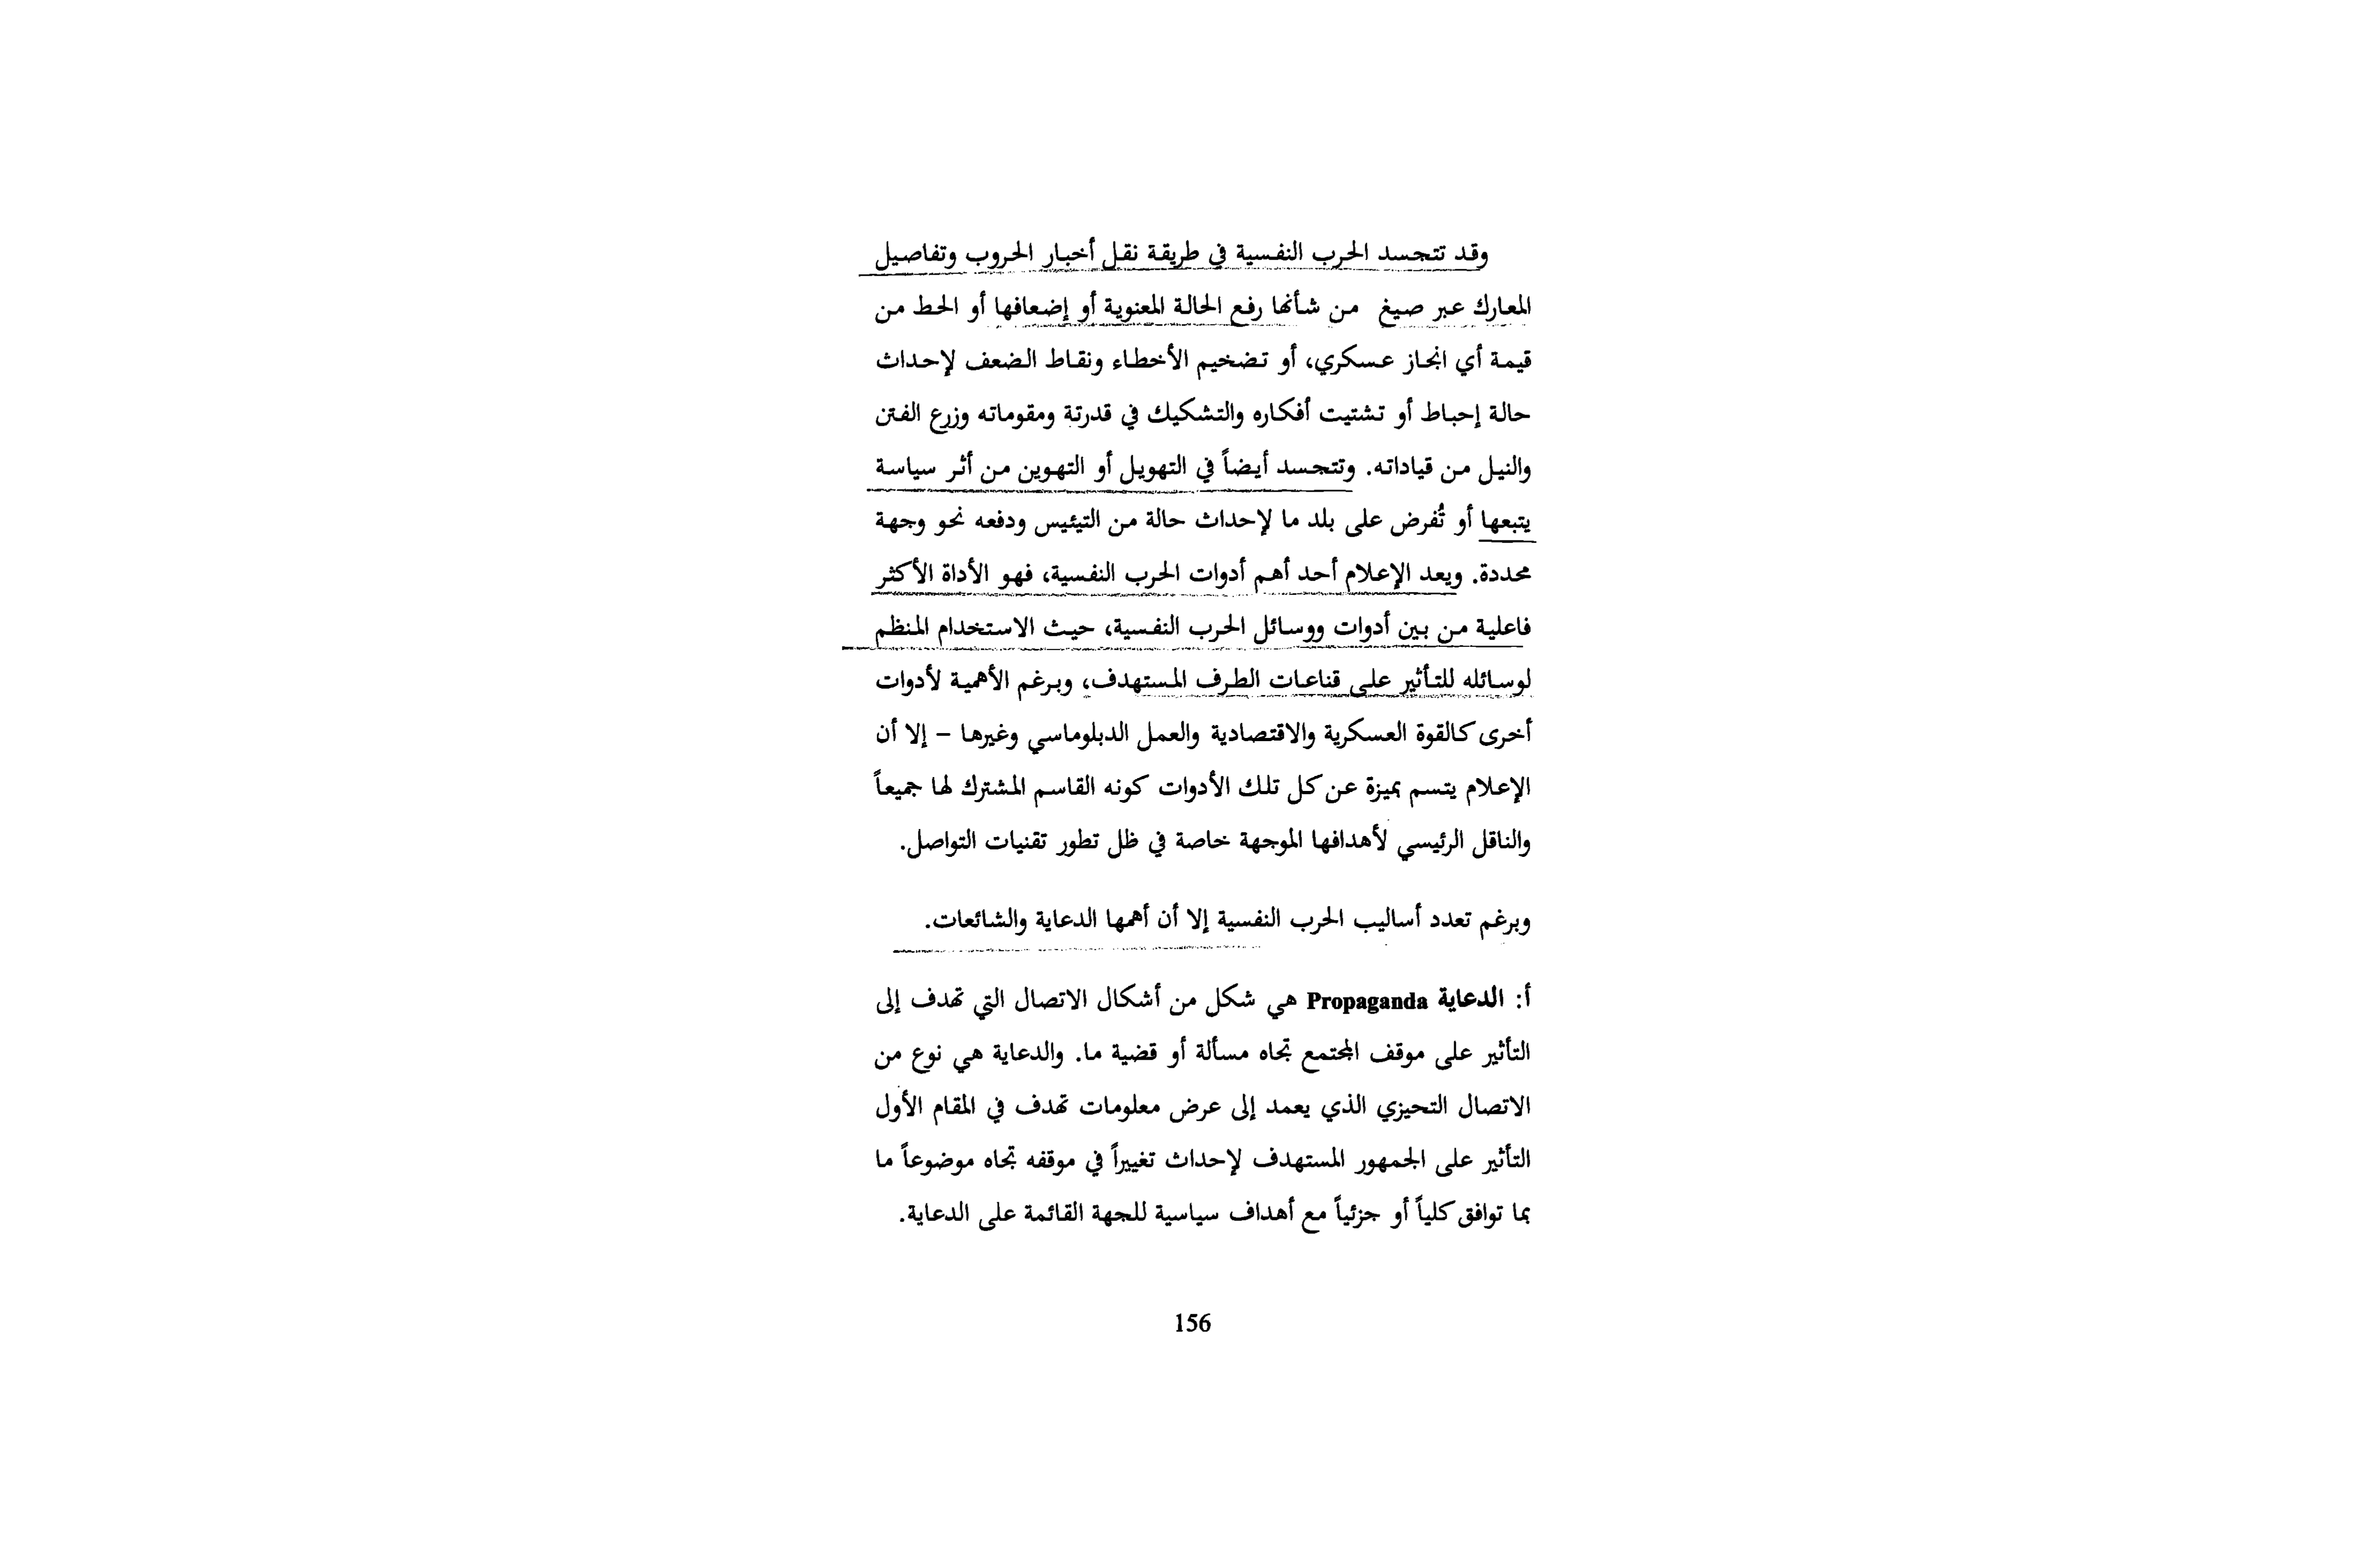 وقد تتجسد الحرب النفسية في طريقة نقل أخبار الحروب وتفاصيل
المعارك عبر صيغ من شأنها رفع الحالة المعنوية أو إضعافها أو الحط من
قيمة أي انجاز عسكري، أو تضخيم الأخطاء ونقاط الضعف لإحداث
حالة إحباط أو تشتيت أفكاره والتشكيك في قدرتة ومقوماته وزرع الفتن
والنيل من قياداته. وتتجسد أيضاً في التهويل أو التهوين من أثر سياسة
يتبعها أو تُفرض على بلد ما لإحداث حالة من التيئيس ودفعه نحو وجهة
محددة. ويعد الإعلام أحد أهم أدوات الحرب النفسية، فهو الأداة الأكثر
فاعلية من بين أدوات ووسائل الحرب النفسية، حيث الاستخدام المنظم
لوسائله للتأثير على قناعات الطرف المستهدف، وبرغم الأهمية لأدوات
أخرى كالقوة العسكرية والاقتصادية والعمل الدبلوماسي وغيرها – إلا أن
الإعلام يتسم بميزة عن كل تلك الأدوات كونه القاسم المشترك لها جميعاً
والناقل الرئيسي لأهدافها الموجهة خاصة في ظل تطور تقنيات التواصل.
وبرغم تعدد أساليب الحرب النفسية إلا أن أهمها الدعاية والشائعات.
أ: الدعاية Propaganda هي شكل من أشكال الاتصال التي تهدف إلى
التأثير على موقف المجتمع تجاه مسألة أو قضية ما. والدعاية هي نوع من
الاتصال التحيزي الذي يعمد إلى عرض معلومات تهدف في المقام الأول
التأثير على الجمهور المستهدف لإحداث تغييراً في موقفه تجاه موضوعاً ما
بما توافق كلياً أو جزئياً مع أهداف سياسية للجهة القائمة على الدعاية.
156